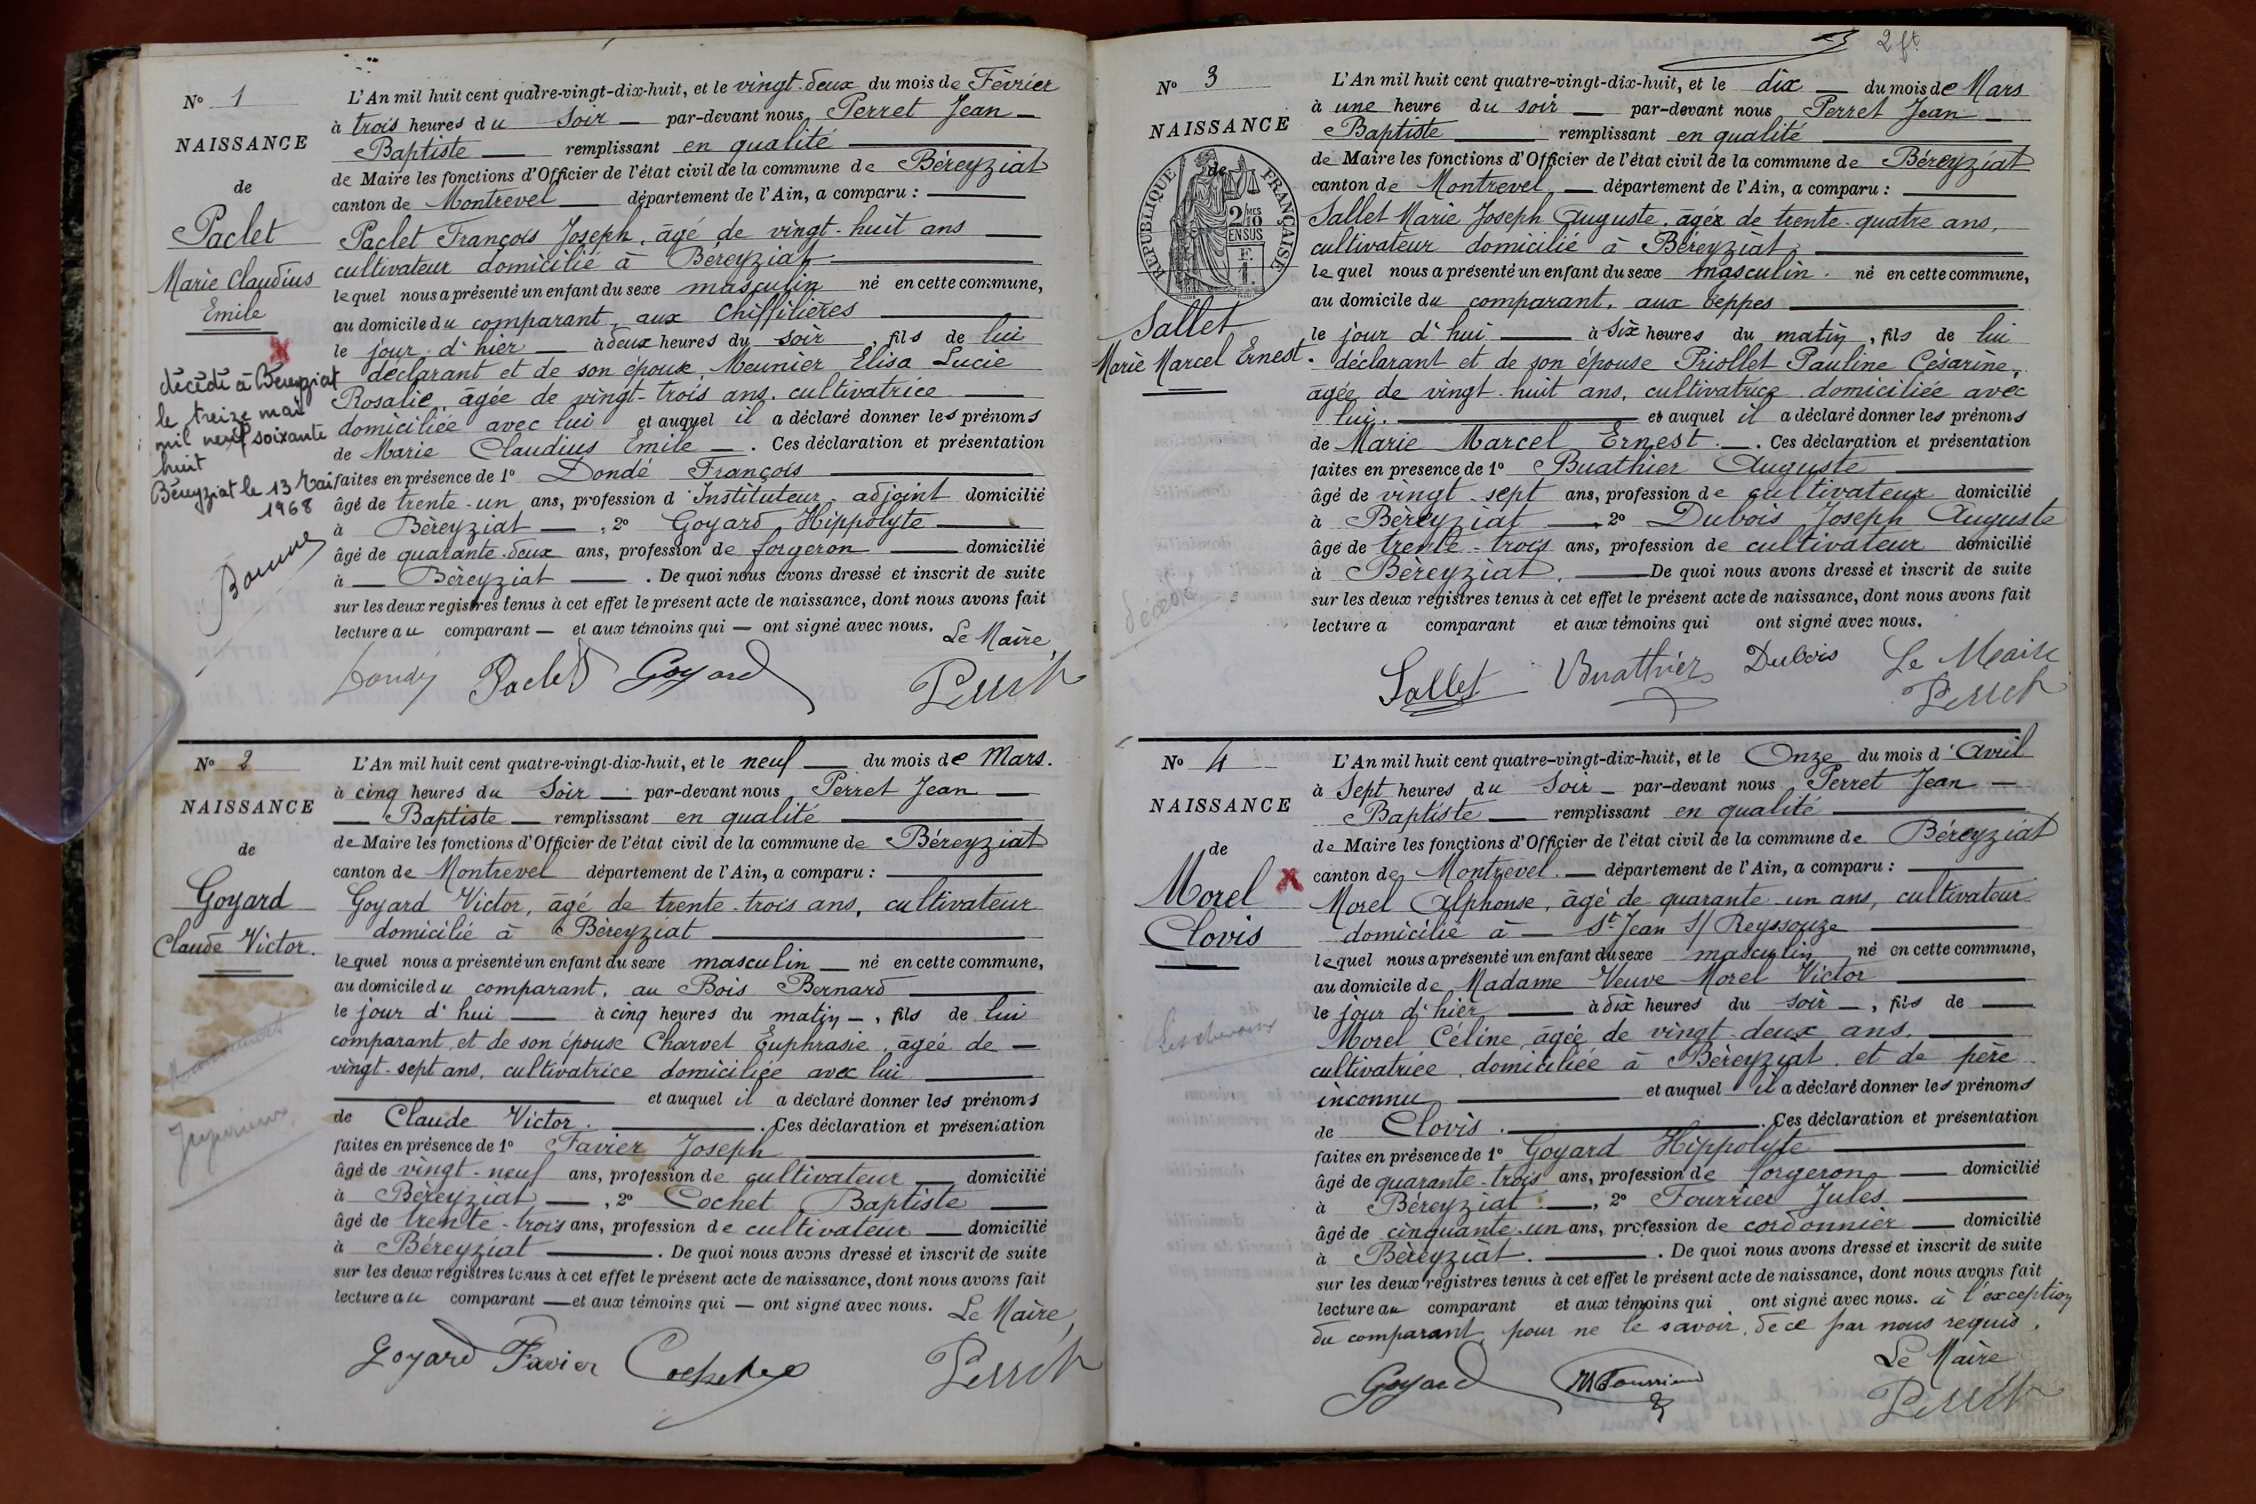 N° 1
NAISSANCE
de
Paclet
Marie Claudius
Emile
décédé à Béreyziat
le treize mai
mil neuf soixante
huit
Béreyziat le 13 Mai
1968
L'An mil huit cent quatre-vingt-dix-huit, et le vingt-deux du mois de Février
à trois heures du Soir — par-devant nous, Perret Jean —
Baptiste — remplissant en qualité —
de Maire les fonctions d'Officier de l'état civil de la commune de Béreyziat
canton de Montrevel — département de l'Ain, a comparu : —
Paclet François Joseph, âgé de vingt-huit ans —
cultivateur domicilié à Béreyziat —
lequel nous a présenté un enfant du sexe masculin né en cette commune,
au domicile du comparant, aux Chiffilières —
le jour d'hier — à deux heures du soir, fils de lui
déclarant et de son épouse, Meunier Elisa Lucie
Rosalie, âgée de vingt-trois ans, cultivatrice —
domiciliée avec lui et auquel il a déclaré donner les prénoms
de Marie Claudius Emile —. Ces déclaration et présentation
faites en présence de 1° Dondé François —
âgé de trente-un ans, profession d'Instituteur-adjoint domicilié
à Béreyziat —, 2° Goyard Hippolyte —
âgé de quarante-deux ans, profession de forgeron — domicilié
à — Béreyziat —. De quoi nous avons dressé et inscrit de suite
sur les deux registres tenus à cet effet le présent acte de naissance, dont nous avons fait
lecture au comparant — et aux témoins qui — ont signé avec nous. Le Maire,
Dondé Paclet Goyard Perret
N° 2
NAISSANCE
de
Goyard
Claude Victor.
L'An mil huit cent quatre-vingt-dix-huit, et le neuf — du mois de Mars.
à cinq heures du Soir — par-devant nous, Perret Jean —
— Baptiste — remplissant en qualité —
de Maire les fonctions d'Officier de l'état civil de la commune de Béreyziat
canton de Montrevel département de l'Ain, a comparu : —
Goyard Victor, âgé de trente-trois ans, cultivateur
domicilié à Béreyziat —
lequel nous a présenté un enfant du sexe masculin — né en cette commune,
au domicile du comparant, au Bois Bernard —
le jour d'hui — à cinq heures du matin —, fils de lui
comparant, et de son épouse Charvet Euphrasie, âgée de —
vingt-sept ans, cultivatrice domiciliée avec lui —
— et auquel il a déclaré donner les prénoms
de Claude Victor. —. Ces déclaration et présentation
faites en présence de 1° Favier Joseph —
âgé de vingt-neuf ans, profession de cultivateur — domicilié
à Béreyziat —, 2° Cochet Baptiste —
âgé de trente-trois ans, profession de cultivateur — domicilié
à Béreyziat —. De quoi nous avons dressé et inscrit de suite
sur les deux registres tenus à cet effet le présent acte de naissance, dont nous avons fait
lecture au comparant — et aux témoins qui — ont signé avec nous. Le Maire,
Goyard Favier Cochet Perret
2 ft
N° 3
NAISSANCE
de
RÉPUBLIQUE FRANÇAISE
2/10 MES
EN SUS
Sallet
Marie Marcel Ernest.
décédé
L'An mil huit cent quatre-vingt-dix-huit, et le dix — du mois de Mars
à une heure du soir — par-devant nous Perret Jean —
Baptiste — remplissant en qualité —
de Maire les fonctions d'Officier de l'état civil de la commune de Béreyziat
canton de Montrevel — département de l'Ain, a comparu : —
Sallet Marie Joseph Auguste, âgée de trente-quatre ans,
cultivateur domicilié à Béreyziat —
lequel nous a présenté un enfant du sexe masculin. né en cette commune,
au domicile du comparant, aux Teppes —
le jour d'hui — à six heures du matin, fils de lui
déclarant et de son épouse Priollet Pauline Césarine,
âgée de vingt-huit ans, cultivatrice domiciliée avec
lui. — et auquel il a déclaré donner les prénoms
de Marie Marcel Ernest. —. Ces déclaration et présentation
faites en présence de 1° Buathier Auguste —
âgé de vingt-sept ans, profession de cultivateur domicilié
à Béreyziat —, 2° Dubois Joseph Auguste
âgé de trente-trois ans, profession de cultivateur domicilié
à Béreyziat. — De quoi nous avons dressé et inscrit de suite
sur les deux registres tenus à cet effet le présent acte de naissance, dont nous avons fait
lecture a comparant et aux témoins qui ont signé avec nous.
Sallet Buathier Dubois Le Maire
Perret
N° 4
NAISSANCE
de
Morel
Clovis
L'An mil huit cent quatre-vingt-dix-huit, et le Onze du mois d'Avril
à Sept heures du Soir — par-devant nous Perret Jean —
Baptiste — remplissant en qualité —
de Maire les fonctions d'Officier de l'état civil de la commune de Béreyziat
canton de Montrevel. — département de l'Ain, a comparu : —
Morel Alphonse, âgé de quarante-un ans, cultivateur
domicilié à — St Jean S/ Reyssouze —
lequel nous a présenté un enfant du sexe masculin né en cette commune,
au domicile de Madame Veuve Morel Victor —
le jour d'hier — à dix heures du soir —, fils de —
Morel Céline, âgée de vingt-deux ans, —
cultivatrice, domiciliée à Béreyziat, et de père
inconnu — et auquel il a déclaré donner les prénoms
de Clovis. —. Ces déclaration et présentation
faites en présence de 1° Goyard Hippolyte —
âgé de quarante-trois ans, profession de forgeron — domicilié
à Béreyziat. —, 2° Fourrier Jules —
âgé de cinquante-un ans, profession de cordonnier — domicilié
à Béreyziat. —. De quoi nous avons dressé et inscrit de suite
sur les deux registres tenus à cet effet le présent acte de naissance, dont nous avons fait
lecture au comparant et aux témoins qui ont signé avec nous. à l'exception
du comparant, pour ne le savoir, de ce par nous requis.
Le Maire
Goyard Fourrier Perret